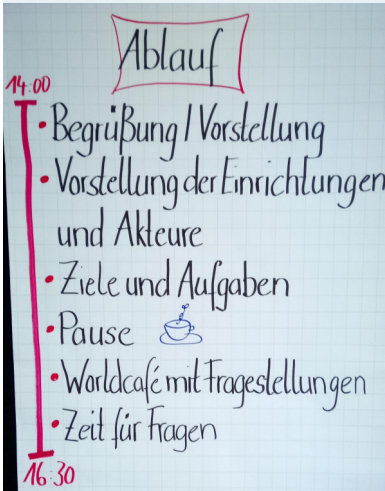 Ablauf
14:00
• Begrüßung / Vorstellung
• Vorstellung der Einrichtungen
und Akteure
• Ziele und Aufgaben
• Pause
• Worldcafé mit Fragestellungen
• Zeit für Fragen
16:30